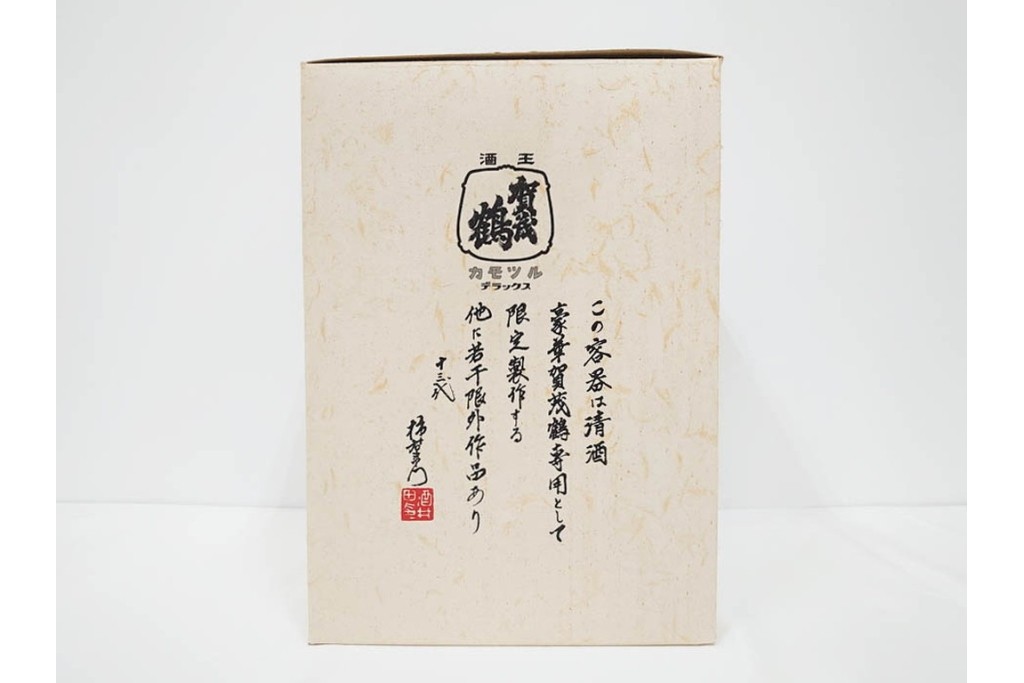 酒王
賀茂鶴
カモツル
デラックス
この容器は清酒
豪華賀茂鶴専用として
限定製作する
他に若干限外作品あり
十三代
柿右衛門
酒井田